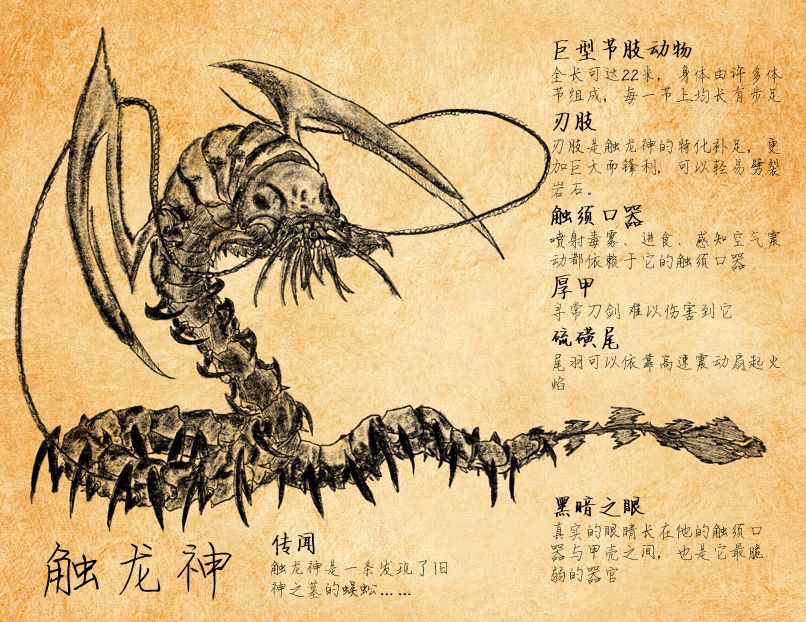 巨型节肢动物
全长可达22米，身体由许多体
节组成，每一节上均长有步足
刃肢
刃肢是触龙神的特化补足，更
加巨大而锋利，可以轻易劈裂
岩石。
触须口器
喷射毒雾、进食、感知空气震
动都依赖于它的触须口器
厚甲
寻常刀剑难以伤害到它
硫磺尾
尾羽可以依靠高速震动扇起火
焰
黑暗之眼
真实的眼睛长在他的触须口
器与甲壳之间，也是它最脆
弱的器官
传闻
触龙神是一条发现了旧
神之墓的蜈蚣……
触龙神